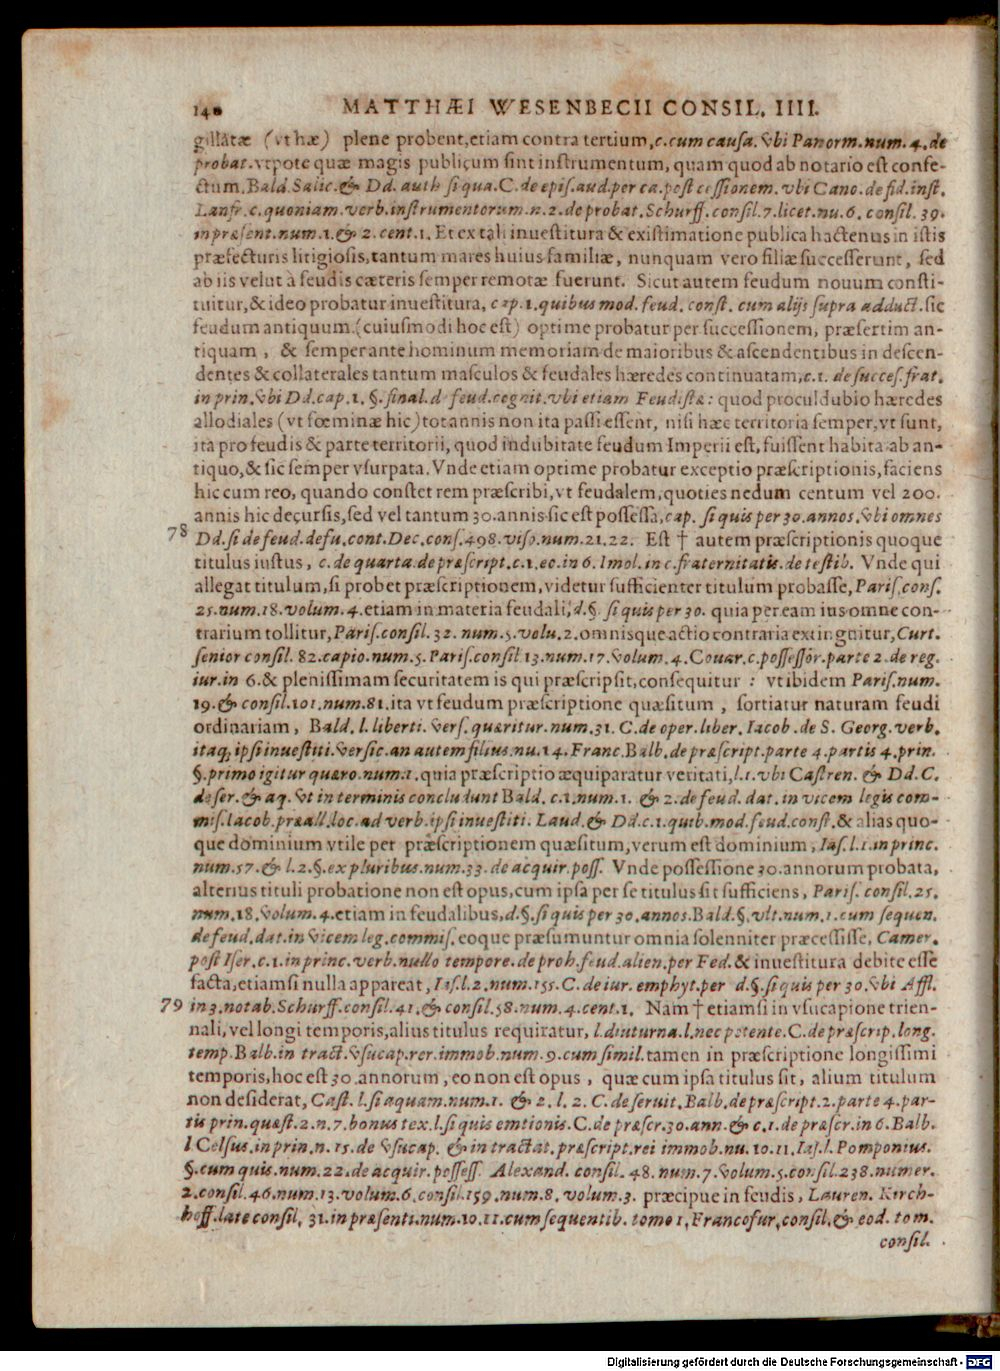 140 MATTHÆI WESENBECII CONSIL. IIII.
gillatæ (vt hæ) plene probent, etiam contra tertium, c. cum causa. vbi Panorm. num. 4. de
probat. vtpote quæ magis publicum sint instrumentum, quam quod ab notario est confe-
ctum. Bald. Salic. & Dd. auth. si qua. C. de epis. aud. per ca. post cessionem. vbi Cano. de fid. inst.
Lanfr. c. quoniam. verb. instrumentorum. n. 2. de probat. Schurff. consil. 7. licet. nu. 6. consil. 39.
in præsent. num. 1. & 2. cent. 1. Et ex tali inuestitura & existimatione publica hactenus in istis
præfecturis litigiosis, tantum mares huius familiæ, nunquam vero filiæ successerunt, sed
ab iis velut à feudis cæteris semper remotæ fuerunt. Sicut autem feudum nouum consti-
tuitur, & ideo probatur inuestitura, cap. 1. quibus mod. feud. const. cum alijs supra adduct. sic
feudum antiquum (cuiusmodi hoc est) optime probatur per successionem, præsertim an-
tiquam, & semper ante hominum memoriam de maioribus & ascendentibus in descen-
dentes & collaterales tantum masculos & feudales hæredes continuatam, c. 1. de succes. frat.
in prin. vbi Dd. cap. 1. §. final. d. feud. cognit. vbi etiam Feudistæ: quod proculdubio hæredes
allodiales (vt fœminæ hic) tot annis non ita passi essent, nisi hæc territoria semper, vt sunt,
ita pro feudis & parte territorii, quod indubitate feudum Imperii est, fuissent habita ab an-
tiquo, & sic semper vsurpata. Vnde etiam optime probatur exceptio præscriptionis, faciens
hic cum reo, quando constet rem præscribi, vt feudalem, quoties nedum centum vel 200.
annis hic decursis, sed vel tantum 30. annis sic est possessa, cap. si quis per 30. annos. vbi omnes
78 Dd. si de feud. defu. cont. Dec. cons. 498. viso. num. 21. 22. Est † autem præscriptionis quoque
titulus iustus, c. de quarta. de præscript. c. 1. eo. in 6. Imol. in c. fraternitatis. de testib. Vnde qui
allegat titulum, si probet præscriptionem, videtur sufficienter titulum probasse, Paris. cons.
25. num. 18. volum. 4. etiam in materia feudali, d. §. si quis per 30. quia per eam ius omne con-
trarium tollitur, Paris. consil. 32. num. 5. volu. 2. omnisque actio contraria extinguitur, Curt.
senior consil. 82. capio. num. 5. Paris. consil. 13. num. 17. volum. 4. Couar. c. possessor. parte 2. de reg.
iur. in 6. & plenissimam securitatem is qui præscripsit, consequitur : vt ibidem Paris. num.
19. & consil. 101. num. 81. ita vt feudum præscriptione quæsitum, sortiatur naturam feudi
ordinariam, Bald. l. liberti. vers. quæritur. num. 31. C. de oper. liber. Iacob. de S. Georg. verb.
itaq; ipsi inuestiti. versic. an autem filius. nu. 14. Franc. Balb. de præscript. parte 4. partis 4. prin.
§. primo igitur quæro. num. 1. quia præscriptio æquiparatur veritati, l. 1. vbi Castren. & Dd. C.
de ser. & aq. vt in terminis concludunt Bald. c. 1. num. 1. & 2. de feud. dat. in vicem legis com-
mis. Iacob. præall. loc. ad verb. ipsi inuestiti. Laud. & Dd. c. 1. quib. mod. feud. const. & alias quo-
que dominium vtile per præscriptionem quæsitum, verum est dominium, Ias. l. 1. in princ.
num. 57. & l. 2. §. ex pluribus. num. 33. de acquir. poss. Vnde possessione 30. annorum probata,
alterius tituli probatione non est opus, cum ipsa per se titulus sit sufficiens, Paris. consil. 25.
num. 18. volum. 4. etiam in feudalibus, d. §. si quis per 30. annos. Bald. §. vlt. num. 1. cum sequen.
de feud. dat. in vicem leg. commis. eoque præsumuntur omnia solenniter præcessisse, Camer.
post Iser. c. 1. in princ. verb. nullo tempore. de proh. feud. alien. per Fed. & inuestitura debite esse
facta, etiamsi nulla appareat, Ias. l. 2. num. 155. C. de iur. emphyt. per d. §. si quis per 30. vbi Affl.
79 in 3. notab. Schurff. consil. 41. & consil. 58. num. 4. cent. 1. Nam † etiamsi in vsucapione trien-
nali, vel longi temporis, alius titulus requiratur, l. diuturna. l. nec petente. C. de præscrip. long.
temp. Balb. in tract. vsucap. rer. immob. num. 9. cum simil. tamen in præscriptione longissimi
temporis, hoc est 30. annorum, eo non est opus, quæ cum ipsa titulus sit, alium titulum
non desiderat, Cast. l. si aquam. num. 1. & 2. l. 2. C. de seruit. Balb. de præscript. 2. parte 4. par-
tis prin. quæst. 2. n. 7. bonus tex. l. si quis emtionis. C. de præscr. 30. ann. & c. 1. de præscr. in 6. Balb.
l Celsus. in prin. n. 15. de vsucap. & in tractat. præscript. rei immob. nu. 10. 11. Ias. l. Pomponius.
§. cum quis. num. 22. de acquir. possess. Alexand. consil. 48. num. 7. volum. 5. consil. 238. numer.
2. consil. 46. num. 13. volum. 6. consil. 159. num. 8. volum. 3. præcipue in feudis, Lauren. Kirch-
hoff. late consil. 31. in præsenti. num. 10. 11. cum sequentib. tomo 1. Francofur. consil. & eod. tom.
consil.
Digitalisierung gefördert durch die Deutsche Forschungsgemeinschaft - DFG